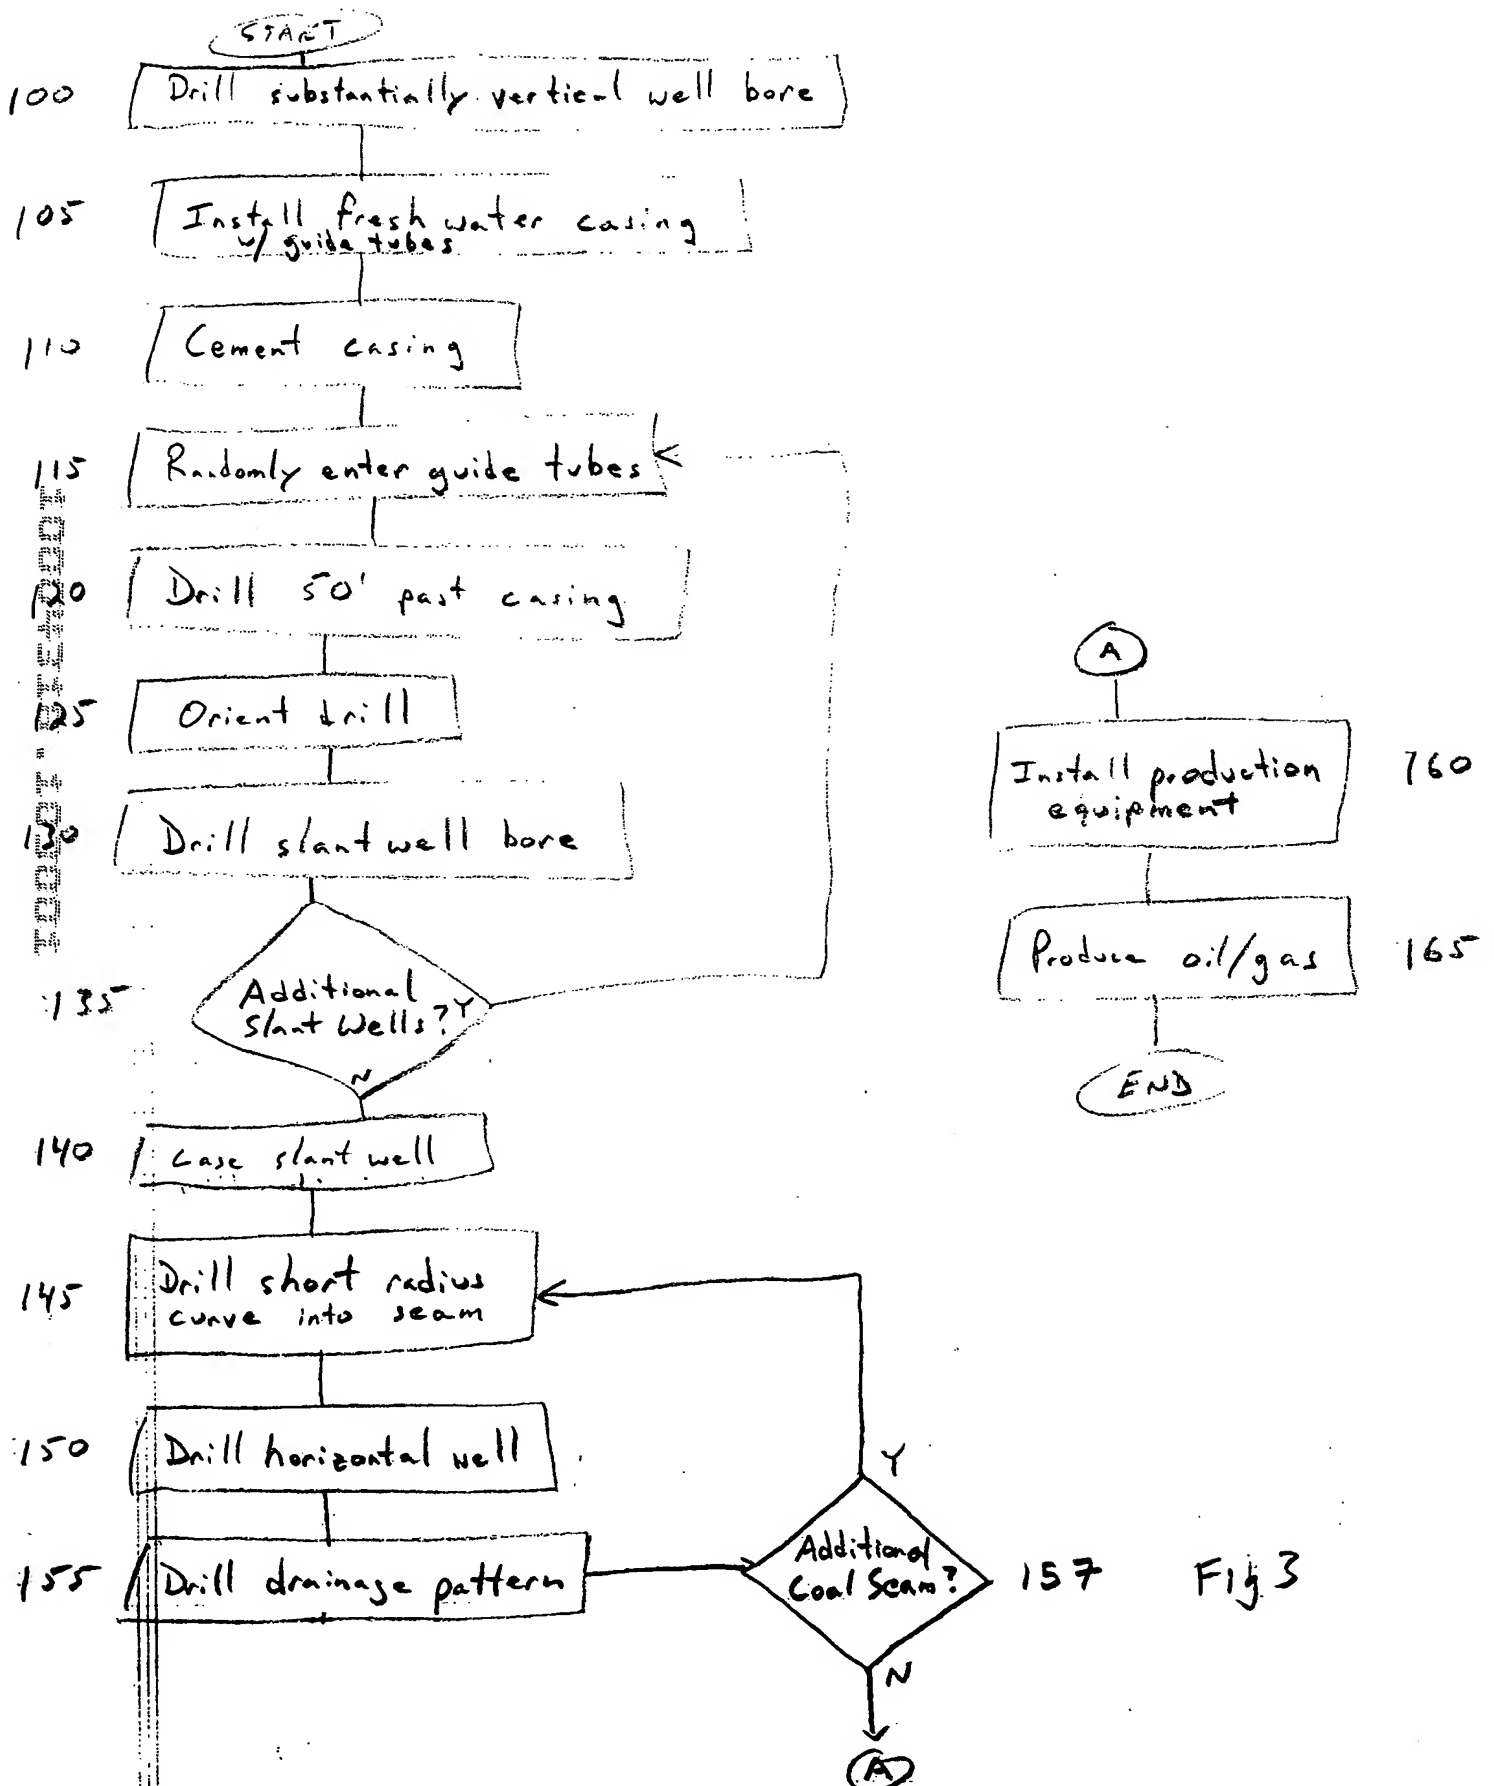 START
100 Drill substantially vertical well bore
105 Install fresh water casing
w/ guide tubes
110 Cement casing
115 Randomly enter guide tubes
120 Drill 50' past casing
125 Orient drill
130 Drill slant well bore
135 Additional
Slant Wells? Y
N
140 Case slant well
145 Drill short radius
curve into seam
150 Drill horizontal well
155 Drill drainage pattern
Y
Additional
Coal Seam?
157
N
A
A
Install production
equipment
160
Produce oil/gas 165
END
Fig 3